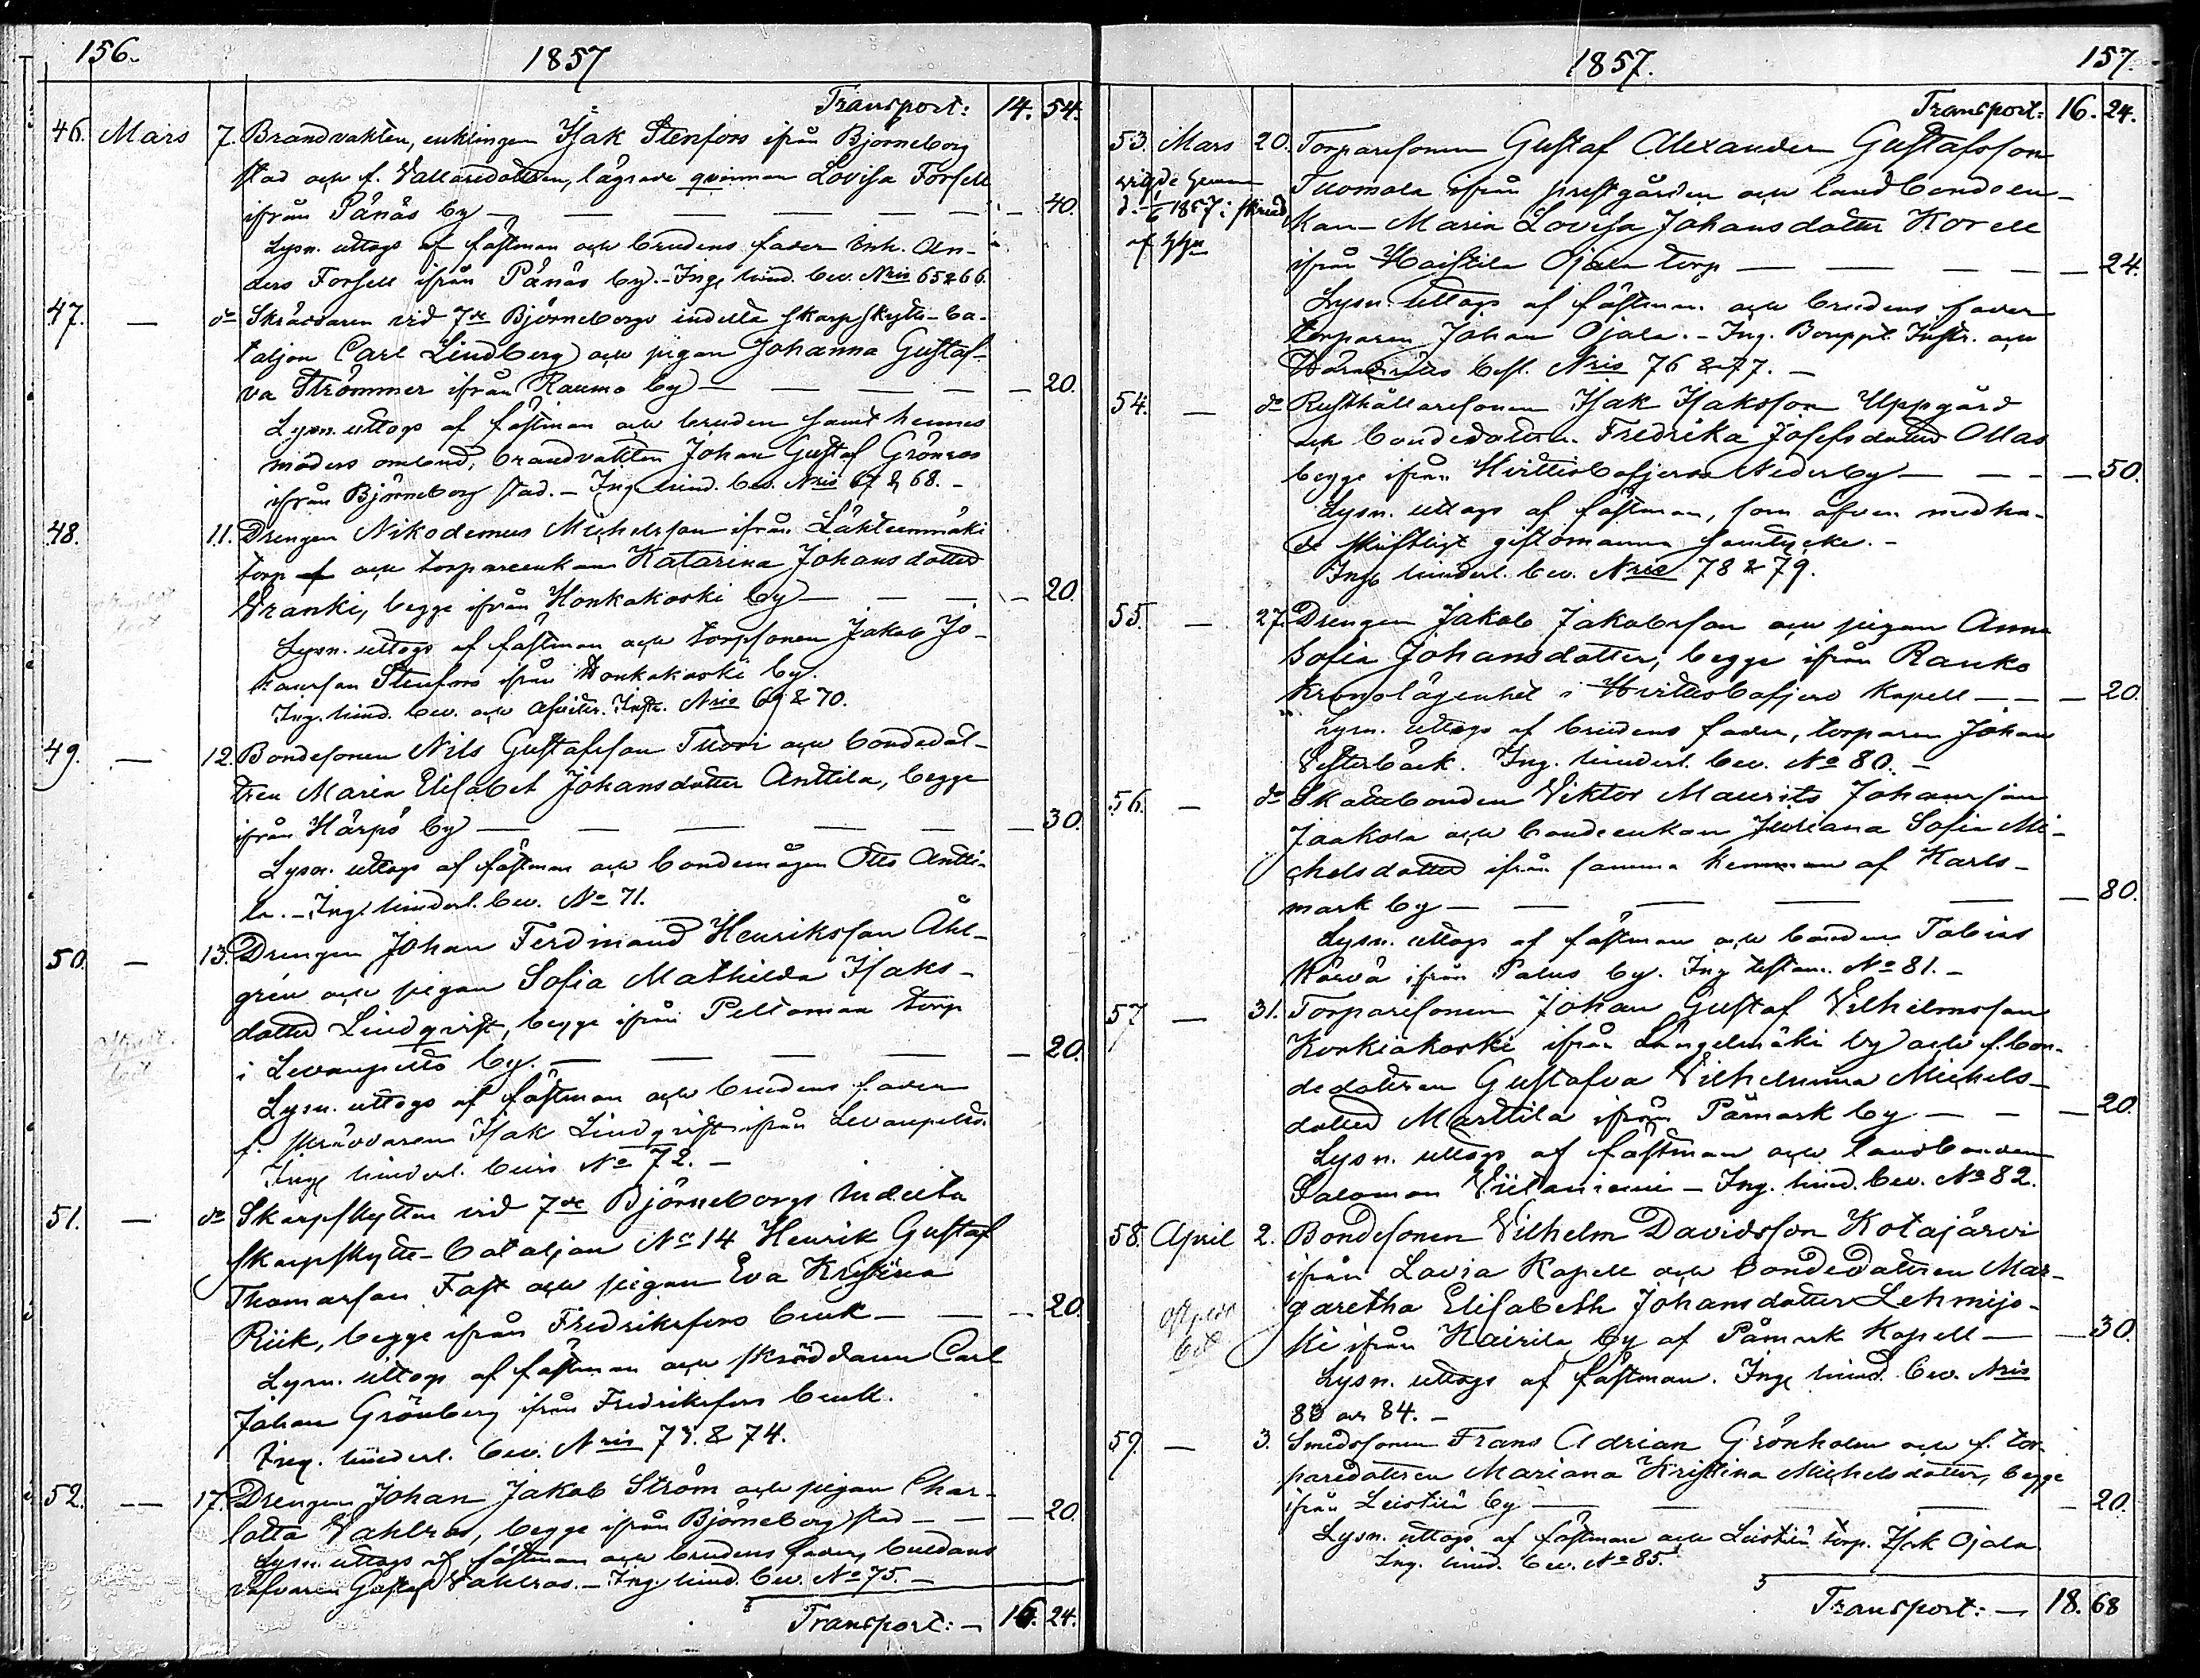 156.
1857
Transport: 14. 54.
46. Mars 7. Brandvakten, enklingen Isak Stenfors ifrån Björneborg
stad och f. Vallaredottren, lägrade qvinnan Lovisa Forsell
ifrån Pånäs by — — — — — 40.
Lysn. uttogs af fästman och brudens fader Inh. An-
ders Forsell ifrån Pånäs by. - Inge hind. bev. Nris 65 & 66.
47. — do Skräddaren vid 7de Björneborgs indelta skarpskytte-ba-
taljon Carl Lindberg och pigan Johanna Gustaf-
va Strömmer ifrån Raumo by — — — — 20.
Lysn. uttogs af fästman och bruden samt hennes
moders ombud, brandvakten Johan Gustaf Grönroos
ifrån Björneborg stad. - Ing. hind. bev. Nris 67 & 68. -
48. 11. Drengen Nikodemus Michelsson ifrån Lähteenmäki
torp och torpareenkan Katarina Johansdotter
Vranki, begge ifrån Honkakoski by — — — 20.
Lysn. uttogs af fästman och torpsonen Jakob Jo-
hansson Stenfors ifrån Honkakoski by.
Ing. hind. bev. och Afvitr. Instr. Nris 69 & 70.
49. — 12. Bondesonen Nils Gustafsson Tuori och bondedot-
tren Maria Elisabet Johansdotter Anttila, begge
ifrån Härpö by — — — — — 30.
Lysn. uttogs af fästman och bondemågen Otto Antti-
la. - Ing. hinderl. bev. No 71.
50. — 13. Drengen Johan Ferdinand Henriksson Åhl-
grén och pigan Sofia Mathilda Isaks-
dotter Lindqvist, begge ifrån Peltoman torp
i Levanpelto by. — — — — 20.
Lysn. uttogs af fästman och brudens fader
f. skräddaren Isak Lindqvist ifrån Levanpelto.
Inge hinderl. bevis No 72. -
51. — do Skarpskytten vid 7de Björneborgs Indelta
skarpskytte-bataljon No 14 Henrik Gustaf
Thomasson Fast och pigan Eva Kristina
Riik, begge ifrån Fredriksfors bruk — — 20.
Lysn. uttogs af fästman och skräddaren Carl
Johan Grönberg ifrån Fredriksfors bruk.
Ing. hinderl. bev. Nris 73. & 74.
52. — 17. Drengen Johan Jakob Ström och pigan Char-
lotta Vahlroos, begge ifrån Björneborg stad — — 20.
Lysn. uttogs af fästman och brudens fader, buldans
väfvaren Gustaf Vahlroos. - Ing. hind. bev. No 75. -
Transport: — 16. 24.
1857.
157.
Transport: 16. 24.
53. Mars 20. Torparesonen Gustaf Alexander Gustafsson
Tuomola ifrån prestgården och landbondeen-
kan Maria Lovisa Johansdotter Korell
ifrån Haistila Ojala torp — — — — 24.
Lysn. uttogs af fästman och brudens fader
torparen Johan Ojala. - Ing. Bouppt. Instr. och
best. Nris 76 & 77. -
54. — do Rusthållaresonen Isak Isaksson Uppgård
och bondedottren Fredrika Josefsdotter Ollas
begge ifrån Hvittisbofjerds Nederby — — — 50.
Lysn. uttogs af fästman, som äfven medha-
de skriftligt giftomanna samtycke. -
Inge hinderl. bev. Nris 78 & 79.
55. — 27. Drengen Jakob Jakobsson och pigan Anna
Sofia Johansdotter, begge ifrån Ranko
kronolägenhet i Hvittisbofjerd Kapell — — — 20.
Lysn. uttogs af brudens fader, torparen Johan
Vesterback. Ing. hinderl. bev. No 80. -
56. — do Skattebonden Viktor Maurits Johansson
Jaakola och bondeenkan Juliana Sofia Mi-
chelsdotter ifrån samma hemman af Karls-
mark by — — — — — 80.
Lysn. uttogs af fästman och bonden Tobias
Karvå ifrån Palus by. Ing. testam. No 81. -
57 — 31. Torparesonen Johan Gustaf Vilhelmsson
Korkiakoski ifrån Längelmäki by och f. bon-
dedottren Gustafva Vilhelmina Michels-
dotter Marttila ifrån Påmark by — — — 20.
Lysn. uttogs af fästman och landbonden
Salomon Viitaniemi — Ing. hind. bev. No 82.
58. April 2. Bondesonen Vilhelm Davidsson Kotajärvi
ifrån Lavia Kapell och bondedottren Mar-
garetha Elisabeth Johansdotter Lehmijo-
ki ifrån Kairila by af Påmark Kapell — — 30.
Lysn. uttogs af fästman. Inge hind. bev. Nris
83 och 84. -
59. — 3. Smedssonen Frans Adrian Grönholm och f. tor-
paredottren Mariana Kristina Michelsdotter, begge
ifrån Leistilä by — — — — 20.
Lysn. uttogs af fästman och Leistilä torp. Isak Ojala
Ing. hind. bev. No 85.
Transport: — 18. 68